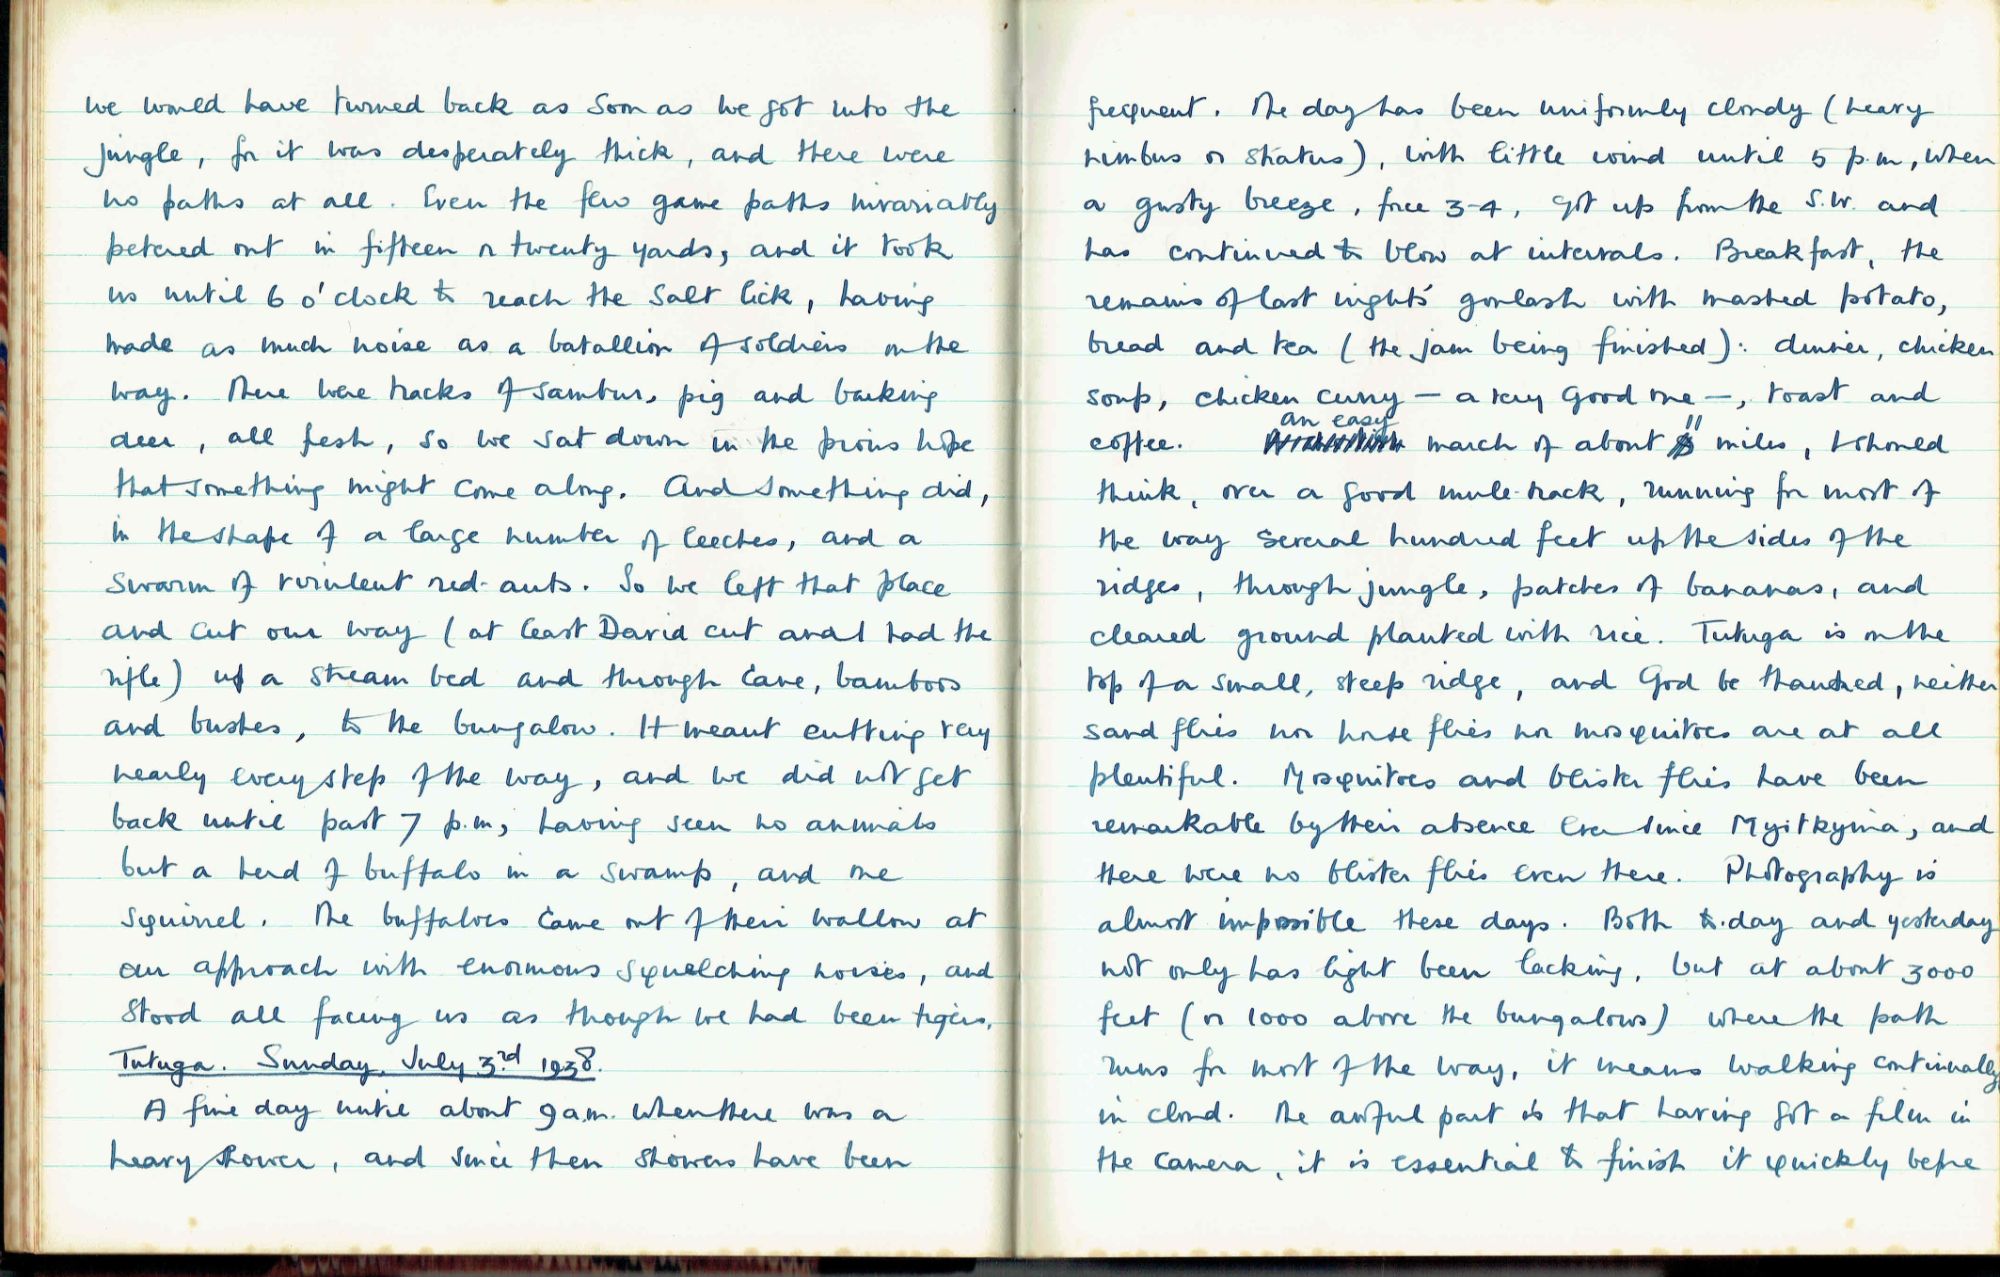 we would have turned back as soon as we got into the
jungle, for it was desperately thick, and there were
no paths at all. Even the few game paths invariably
petered out in fifteen or twenty yards, and it took
us until 6 o'clock to reach the salt lick, having
made as much noise as a batallion of soldiers on the
way. There were tracks of sambur, pig and barking
deer, all fresh, so we sat down in the pious hope
that something might come along. And something did,
in the shape of a large number of leeches, and a
swarm of virulent red-ants. So we left that place
and cut our way (at least David cut and I had the
rifle) up a stream bed and through cane, bamboos
and bushes, to the bungalow. It meant cutting very
nearly every step of the way, and we did not get
back until past 7 p.m, having seen no animals
but a herd of buffalo in a swamp, and one
squirrel. The buffaloes came out of their wallow at
our approach with enormous squelching noises, and
stood all facing us as though we had been tigers.
Tutuga. Sunday, July 3rd 1938.
A fine day until about 9 a.m. when there was a
heavy shower, and since then showers have been
frequent. The day has been uniformly cloudy (heavy
nimbus or stratus), with little wind until 5 p.m, when
a gusty breeze, force 3-4, got up from the S.W. and
has continued to blow at intervals. Breakfast, the
remains of last night's goulash with mashed potato,
bread and tea (the jam being finished): dinner, chicken
soup, chicken curry — a very good one —, toast and
coffee. An easy march of about 11 miles, I should
think, over a good mule-track, running for most of
the way several hundred feet up the sides of the
ridges, through jungle, patches of bananas, and
cleared ground planted with rice. Tutuga is on the
top of a small, steep ridge, and God be thanked, neither
sand flies nor horse flies nor mosquitoes are at all
plentiful. Mosquitoes and blister flies have been
remarkable by their absence ever since Myitkyina, and
there were no blister flies even there. Photography is
almost impossible these days. Both to-day and yesterday
not only has light been lacking, but at about 3000
feet (or 1000 above the bungalows) where the path
runs for most of the way, it means walking continually
in cloud. The awful part is that having got a film in
the camera, it is essential to finish it quickly before